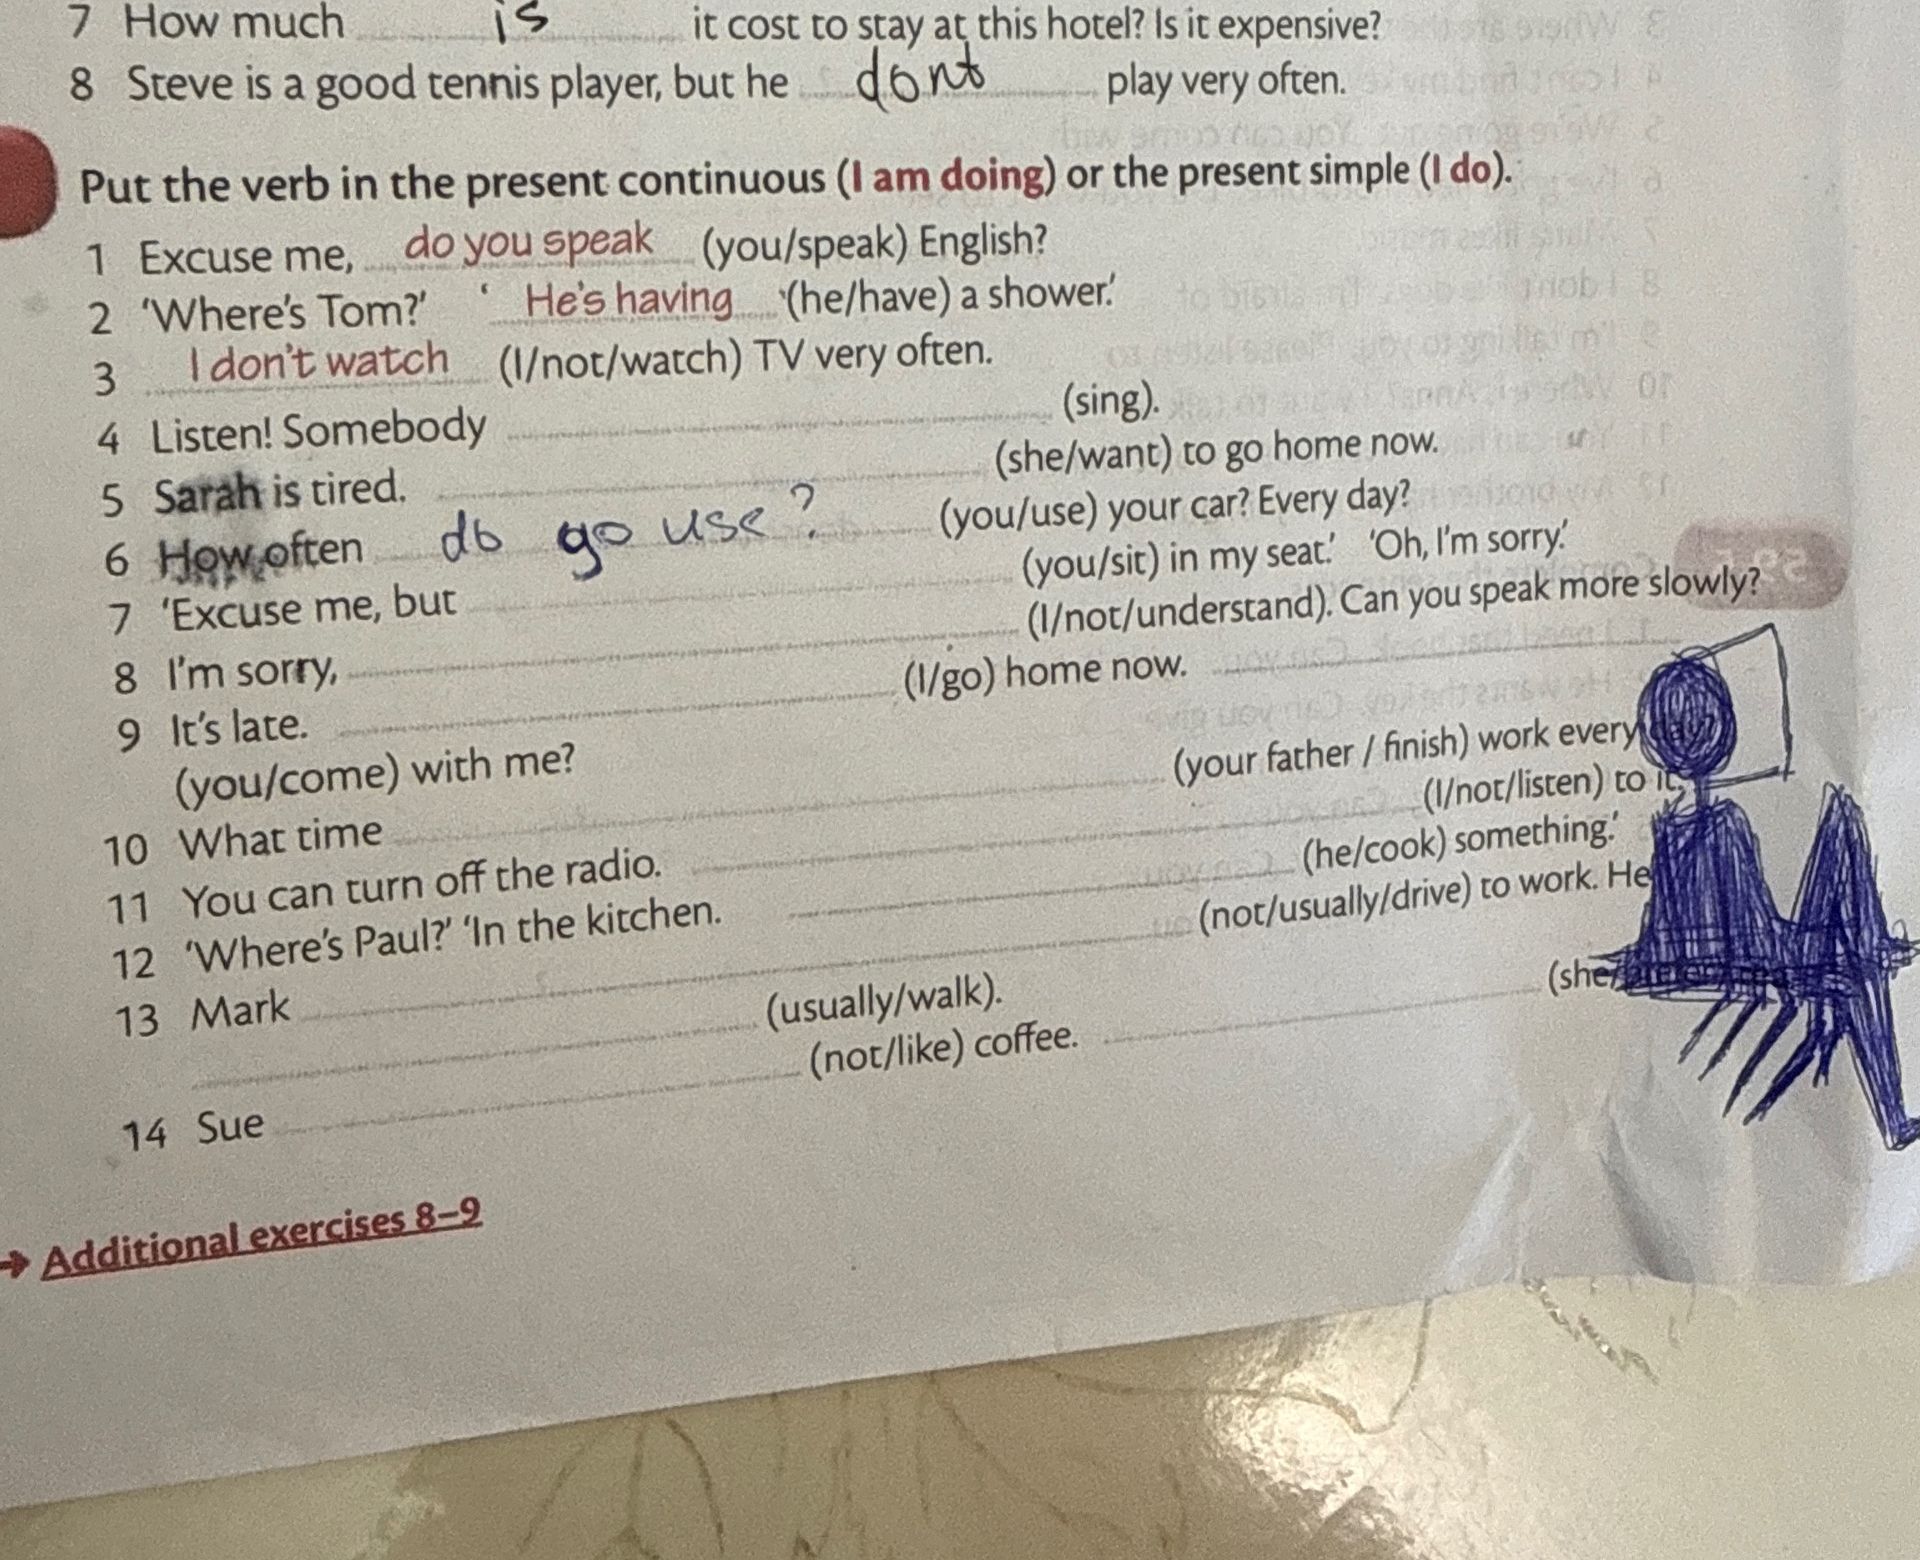 7 How much is it cost to stay at this hotel? Is it expensive?
8 Steve is a good tennis player, but he dont play very often.
Put the verb in the present continuous (I am doing) or the present simple (I do).
1 Excuse me, do you speak (you/speak) English?
2 'Where's Tom?' 'He's having (he/have) a shower.'
3 I don't watch (I/not/watch) TV very often.
4 Listen! Somebody (sing).
5 Sarah is tired. (she/want) to go home now.
6 How often do go use? (you/use) your car? Every day?
7 'Excuse me, but (you/sit) in my seat.' 'Oh, I'm sorry.'
8 I'm sorry, (I/not/understand). Can you speak more slowly?
9 It's late. (I/go) home now.
(you/come) with me?
10 What time (your father / finish) work every day?
11 You can turn off the radio. (I/not/listen) to it.
12 'Where's Paul?' 'In the kitchen. (he/cook) something.'
13 Mark (not/usually/drive) to work. He
(usually/walk).
14 Sue (not/like) coffee. (she/
→ Additional exercises 8–9